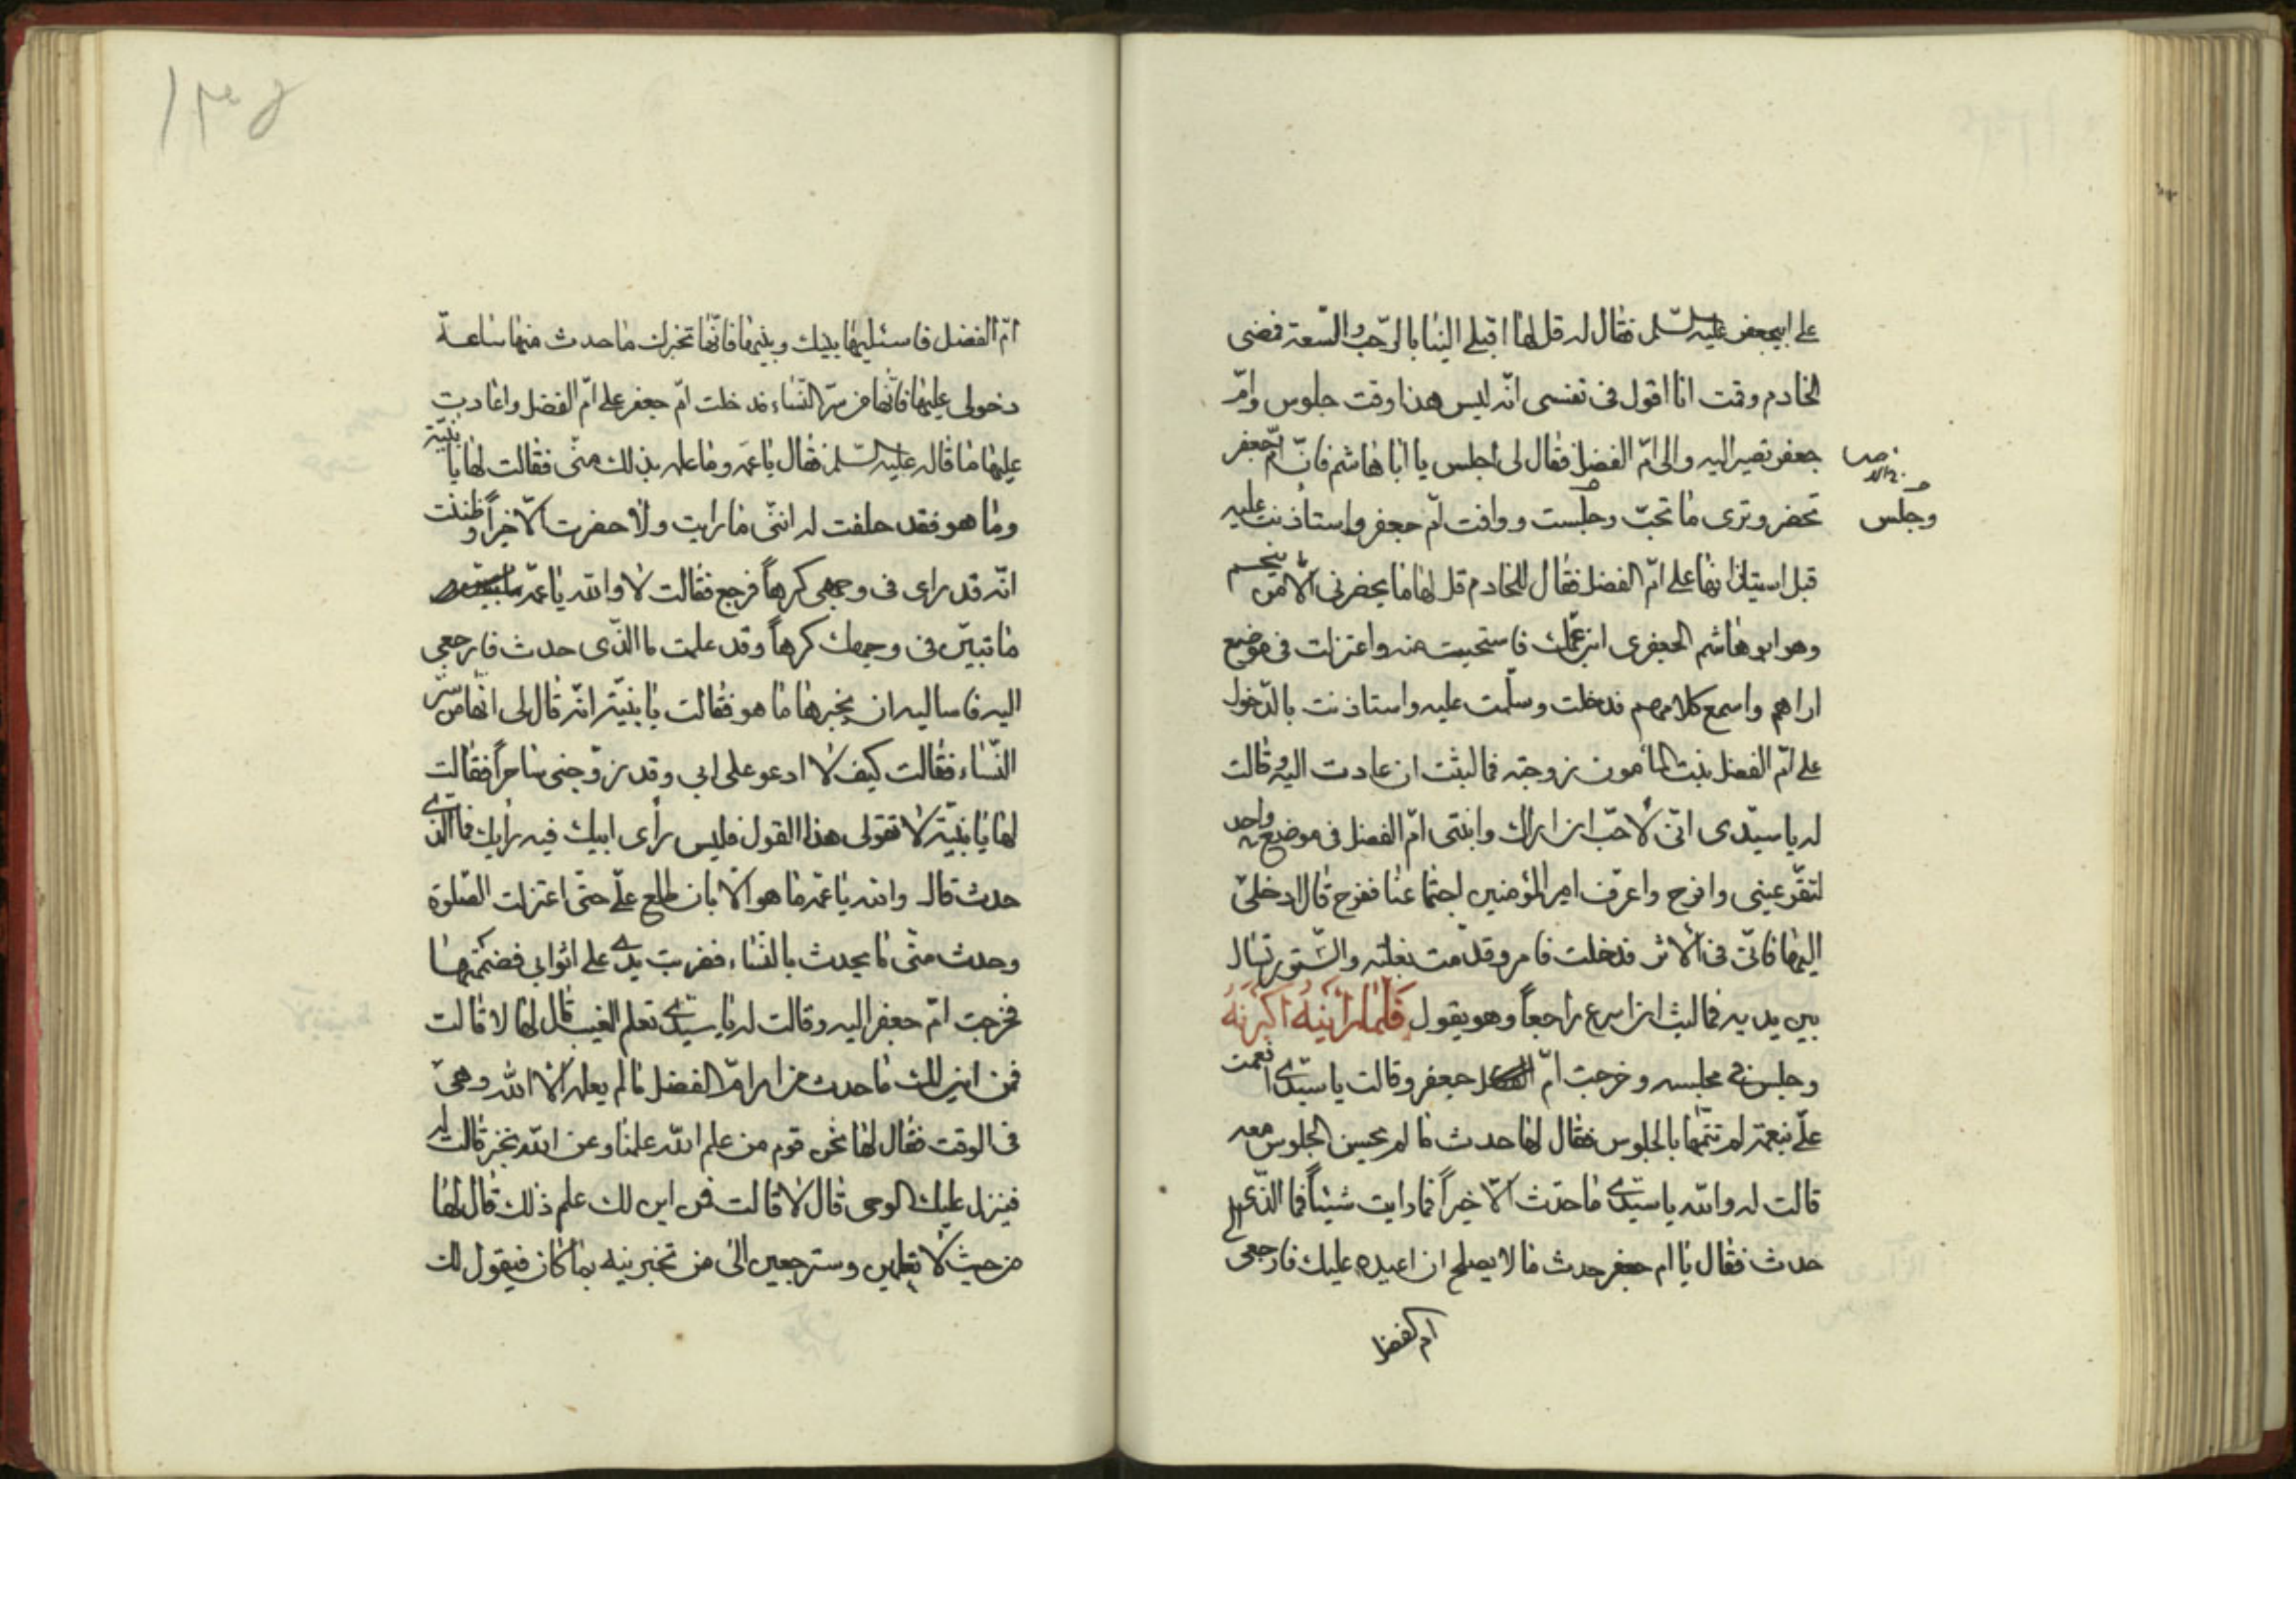 على ابيجعفر عليه السّلم فقال له قل لها اقبلي الينا بالرّحب والسّعة فمضى
الخادم وقمت انا اقول في نفسى انّه ليس هذا وقت جلوس وامّ
جعفر تصير اليه والى امّ الفضل فقال لى اجلس يا ابا هاشم فانّ امّ جعفر
تحضر وترى ما تحبّ وجلست ووافت امّ جعفر واستأذنت عليه
وجلس
قبل استيذانها على امّ الفضل فقال للخادم قل لها ما يحضرنى الّا من
وهو ابو هاشم الجعفرى ابن عمّك فاستحييت منه واعتزلت في موضع
اراهم واسمع كلامهم فدخلت وسلّمت عليه واستاذنت بالدّخول
على امّ الفضل بنت المأمون زوجته فما لبثت ان عادت اليه وقالت
له يا سيّدى انّى لأحبّ ان اراك وابنتى امّ الفضل في موضع واحد
لتقرّ عينى وافرح واعرّف امير المؤمنين اجتماعنا فيفرح قال ادخلى
اليها فانّى في الأثر فدخلت فامر وقدّمت بغلته والسّتور تشال
بين يديه فما لبث ان اسرع راجعاً وهو يقول فَلَمّا رَأَيْنَهُ أَكْبَرْنَهُ
وجلس في مجلسه وخرجت امّ جعفر وقالت يا سيّدى انعمت
علىّ بنعمة لم تتمّها بالجلوس فقال لها حدث ما لم يحسن الجلوس معه
قالت له والله يا سيّدى ما حدث الّا خيراً فما رايت شيئاً فما الذى
حدث فقال يا ام جعفر حدث ما لا يصلح ان اعيده عليك فارجعى
ام الفضل
١٣٥
امّ الفضل فاسئليها بينك وبينها فانّها تخبرك ما حدث منها ساعة
دخولى عليها فانّها من سرّ النّساء فدخلت امّ جعفر على امّ الفضل واعادت
عليها ما قاله عليه السّلم فقال يا عمّه وما علمه بذلك منّى فقالت لها يا بنيّة
وما هو فقد حلفت له انّنى ما رايت ولا حضرت الّا خيراً وظننت
انّه قد راى في وجهى كرهاً فرجع فقالت لا والله يا عمّة
ما تبيّن في وجهك كرهاً وقد علمت ما الذّى حدث فارجعى
اليه فاساليه ان يخبرها ما هو فقالت يا بنيّة انّه قال لى انّها من سرّ
النّساء فقالت كيف لا ادعو على ابي وقد زوّجنى ساحراً فقالت
لها يا بنيّة لا تقولى هذا القول فليس رأى ابيك فيه رايك فما الذى
حدث قال والله يا عمّه ما هو الّا بان طلع علىّ حتّى اعتزلت الصّلوة
وحدث منّى ما يحدث بالنّساء فضربت يدى على اثوابى فضممتها
فخرجت امّ جعفر اليه وقالت له يا سيّدى تعلم الغيب قال لها لا قالت
فمن اين لك ما حدث من امر امّ الفضل ما لم يعلمه الّا الله وهى
في الوقت فقال لها نحن قوم من علم الله علمنا وعن الله نخبر قالت له
فينزل عليك الوحى قال لا قالت فمن اين لك علم ذلك قال لها
من حيث لا تعلمين وسترجعين الى من تخبرينه بما كان فيقول لك